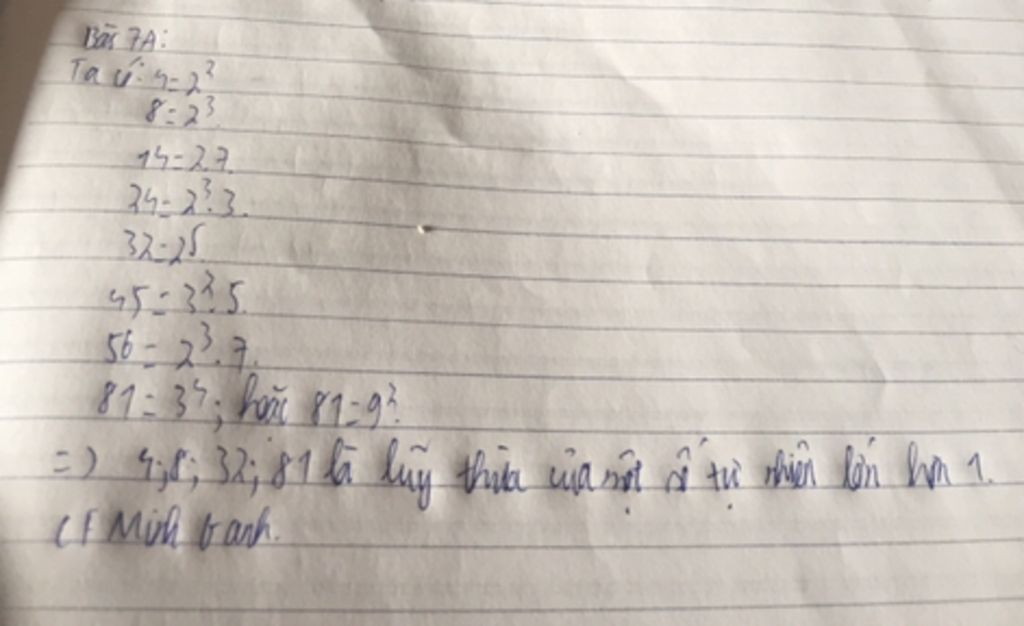 Bài 7A:
Ta có: 4=2²
8=2³
14=2.7.
24=2³.3.
32=2⁵.
45=3².5.
56=2³.7.
81=3⁴; hoặc 81=9².
=) 4;8; 32; 81 là lũy thừa của một số tự nhiên lớn hơn 1.
CF Minh